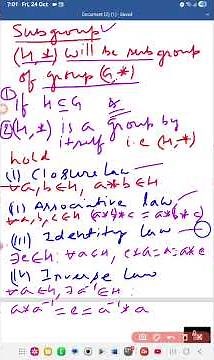 7:01 Fri, 24 Oct
Document (2) (1) - Saved
Subgroup
(H, *) will be subgroup
of group (G, *)
① If H ⊆ G &
② (H, *) is a group by
itself i.e (H, *)
hold
(i) Closure law
∀ a, b ∈ H, a*b ∈ H
(ii) Associative law
∀ a, b, c ∈ H (a*b)*c = a*(b*c)
(iii) Identity law
∃ e ∈ H : ∀ a ∈ H, e*a = a = a*e
(iv) Inverse law
∀ a ∈ H, ∃ a⁻¹ ∈ H :
a*a⁻¹ = e = a⁻¹*a